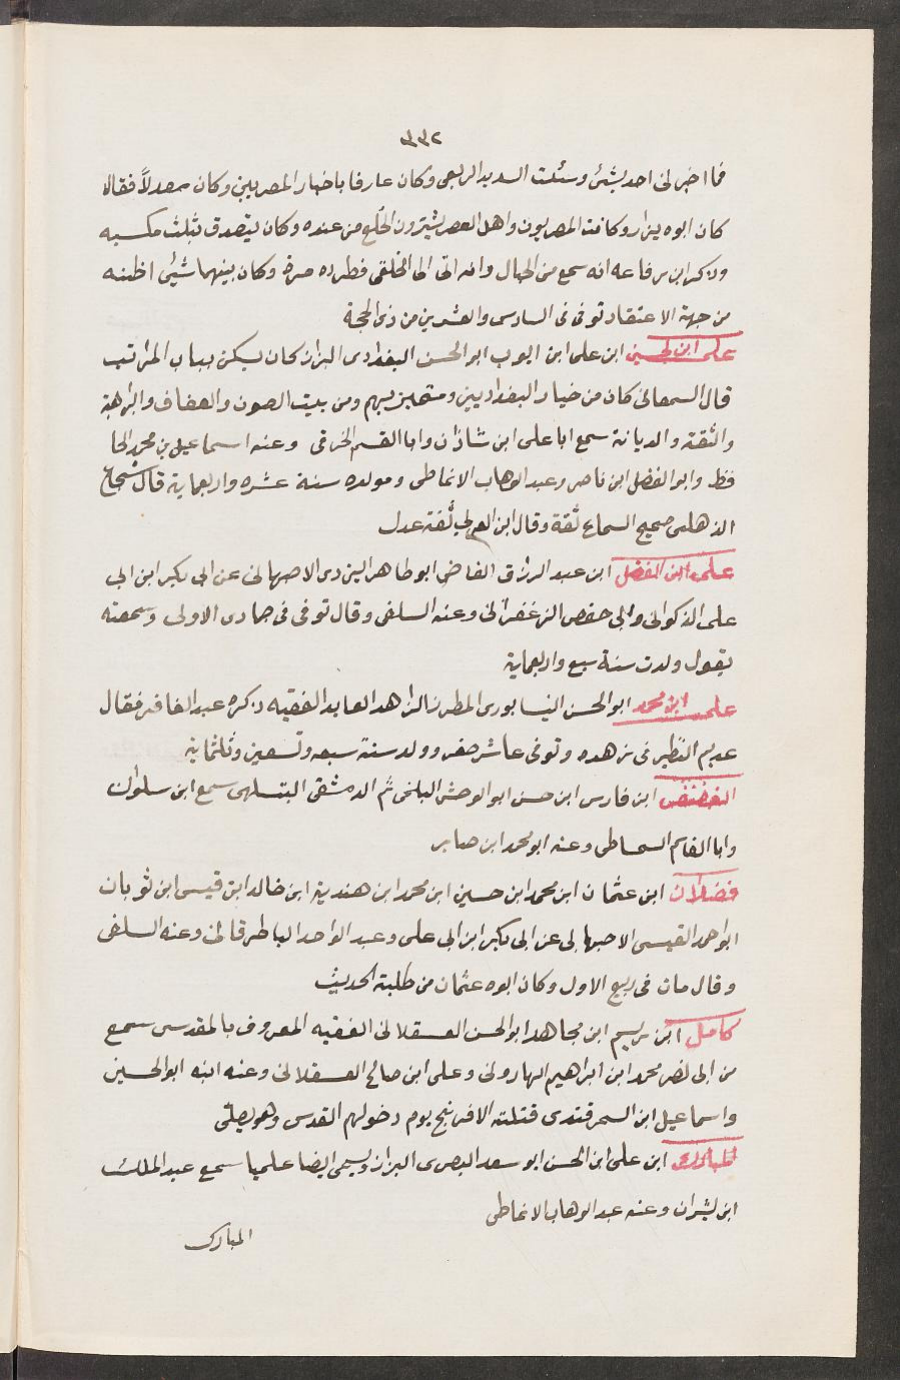 ٣٣٢
فما اخبرنى احد بشئ وسئلت السديد الربعى وكان عارفا باخبار المصريين وكان معدلاً فقال
كان ابوه بزارو كانت المصريون واهل العصر يشترون الخلع من عنده وكان يتصدق بثلث مكسبه
وذكر ابن رفاعه انه سمع من الحبال وانه اتى الى الخلقى فطرده مرة وكان بينهما شيئ اظنه
من جهة الاعتقاد توفى فى السادس والعشرين من ذى الحجة
على ابن لحسين ابن على ابن ايوب ابو الحسن البغدادى البزاز كان يسكن بباب المراتب
قال السمعانى كان من خيار البغداديين ومتميزيهم ومن بيت الصون والعفاف والنزاهة
والثقة والديانة سمع ابا على ابن شاذان وابا القسم الخرقى وعنه اسماعيل بن محمد الحا
فظ وابو الفضل ابن ناصر وعبد الوهاب الانماطى ومولده سنة عشره واربعماية قال شجاع
الذهلى صحيح السماع ثقة وقال ابن العربى ثقة عدل
على ابن المفضل ابن عبد الرزاق القاضى ابو طاهر اليزدى الاصبهانى عن ابى بكر ابن ابى
على الذكوانى وابى حفص الزعفرانى وعنه السلفى وقال توفى فى جمادى الاولى وسمعته
يقول ولدت سنة سبع واربعماية
على ابن محمد ابو الحسن النيسابورى المطرز الزاهد العابد الفقيه ذكره عبد الغافر فقال
عديم النظير فى زهده وتوفى عاشر صفر وولد سنة سبعه وتسعين وثلثماية
الغضنفر ابن فارس ابن حسن ابو الوحش البلخى ثم الدمشقى البتسلهى سمع ابن سلوان
وابا القاسم السماطى وعنه ابو محمد ابن صابر
فضلان ابن عثمان ابن محمد ابن حسين ابن محمد ابن هندية ابن خالد ابن قيس ابن ثوبان
ابو احمد القيسى الاصبهانى عن ابى بكر ابن ابى على وعبد الواحد الباطرقانى وعنه السلفى
وقال مات فى ربيع الاول وكان ابوه عثمان من طلبة الحديث
كامل ابن ريسم ابن مجاهد ابو الحسن العسقلانى الفقيه المعروف بالمقدسى سمع
من ابى نصر محمد ابن ابراهيم الهارونى وعلى ابن صالح العسقلانى وعنه ابنه ابو الحسين
واسماعيل ابن السمرقندى قتلته الافرنج يوم دخولهم القدس وهو يصلّى
المبارك ابن على ابن الحسن ابو سعد البصرى البزاز ويسمى ايضا عليا سمع عبد الملك
ابن بشران وعنه عبد الوهاب الانماطى
المبارك